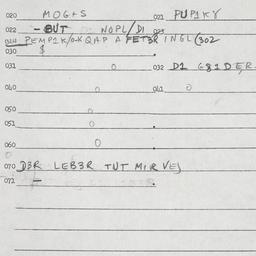 020 MOG+S 021 PUP1KY
022 - BUT NOPL/DI 023
024 PEMP1K/O-K QAP A FET3R INGL (302
030 $
031 0 032 D1 G81DER.
040 0 041 0
050 0
051 0
060 0
070 D3R LEB3R TUT MIR VEJ
071 -